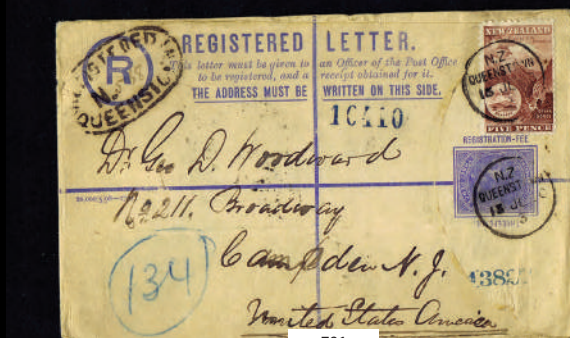 REGISTERED LETTER.
This letter must be given to an Officer of the Post Office
to be registered, and a receipt obtained for it.
THE ADDRESS MUST BE WRITTEN ON THIS SIDE.
REGISTERED
R
N.Z
QUEENST
NEW ZEALAND
FIVE PENCE
N.Z
QUEENSTOWN
15 JL
10410
REGISTRATION-FEE
N.Z
QUEENSTOWN
15 JL
Dr. Geo D. Woodward
No 211. Broadway
Camden N. J.
134
United States America